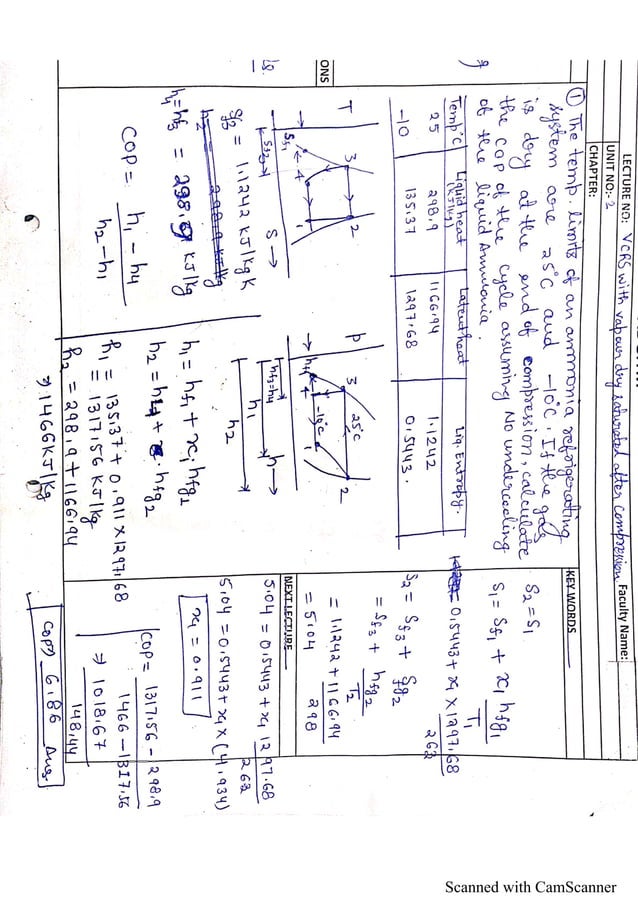 LECTURE NO: VCRS with vapour dry saturated after compression Faculty Name:
UNIT NO:- 2
CHAPTER:
KEY WORDS
① The temp. limits of an ammonia refrigerating
system are 25°C and -10°C. If the gas
is dry at the end of compression, calculate
the COP of the cycle assuming No undercooling
of the liquid Ammonia.
Temp°C Liquid heat (kJ/kg) Latent heat Liq. Entropy.
25 298.9 1166.94 1.1242
-10 135.37 1297.68 0.5443.
T
3 2
4 1
Sf1
Sf2
S →
P
3 25°C 2
4 -10°C 1
hf1
hf3=h4
h →
h1
h2
Sf3 = 1.1242 kJ/kg K
h2 = 298.9 kJ/kg
h4=hf3 = 298.9 kJ/kg
COP = h1 - h4
h2 - h1
h1 = hf1 + x1 hfg2
h2 = hf4 + x. hfg2
h1 = 135.37 + 0.911 × 1297.68
= 1317.56 KJ/kg
h2 = 298.9 + 1166.94
⇒ 1466 KJ/kg
S2 = S1
S1 = Sf1 + x1 hfg1
T1
= 0.5443 + x1 × 1297.68
263
S2 = Sf3 + Sfg2
= Sf3 + hfg2
T2
= 1.1242 + 1166.94
298
= 5.04
NEXT LECTURE
5.04 = 0.5443 + x1 1297.68
263
5.04 = 0.5443 + x1 × (4.934)
x1 = 0.911
COP = 1317.56 - 298.9
1466 - 1317.56
⇒ 1018.67
148.44
COP ⇒ 6.86 Ans
ONS
Scanned with CamScanner